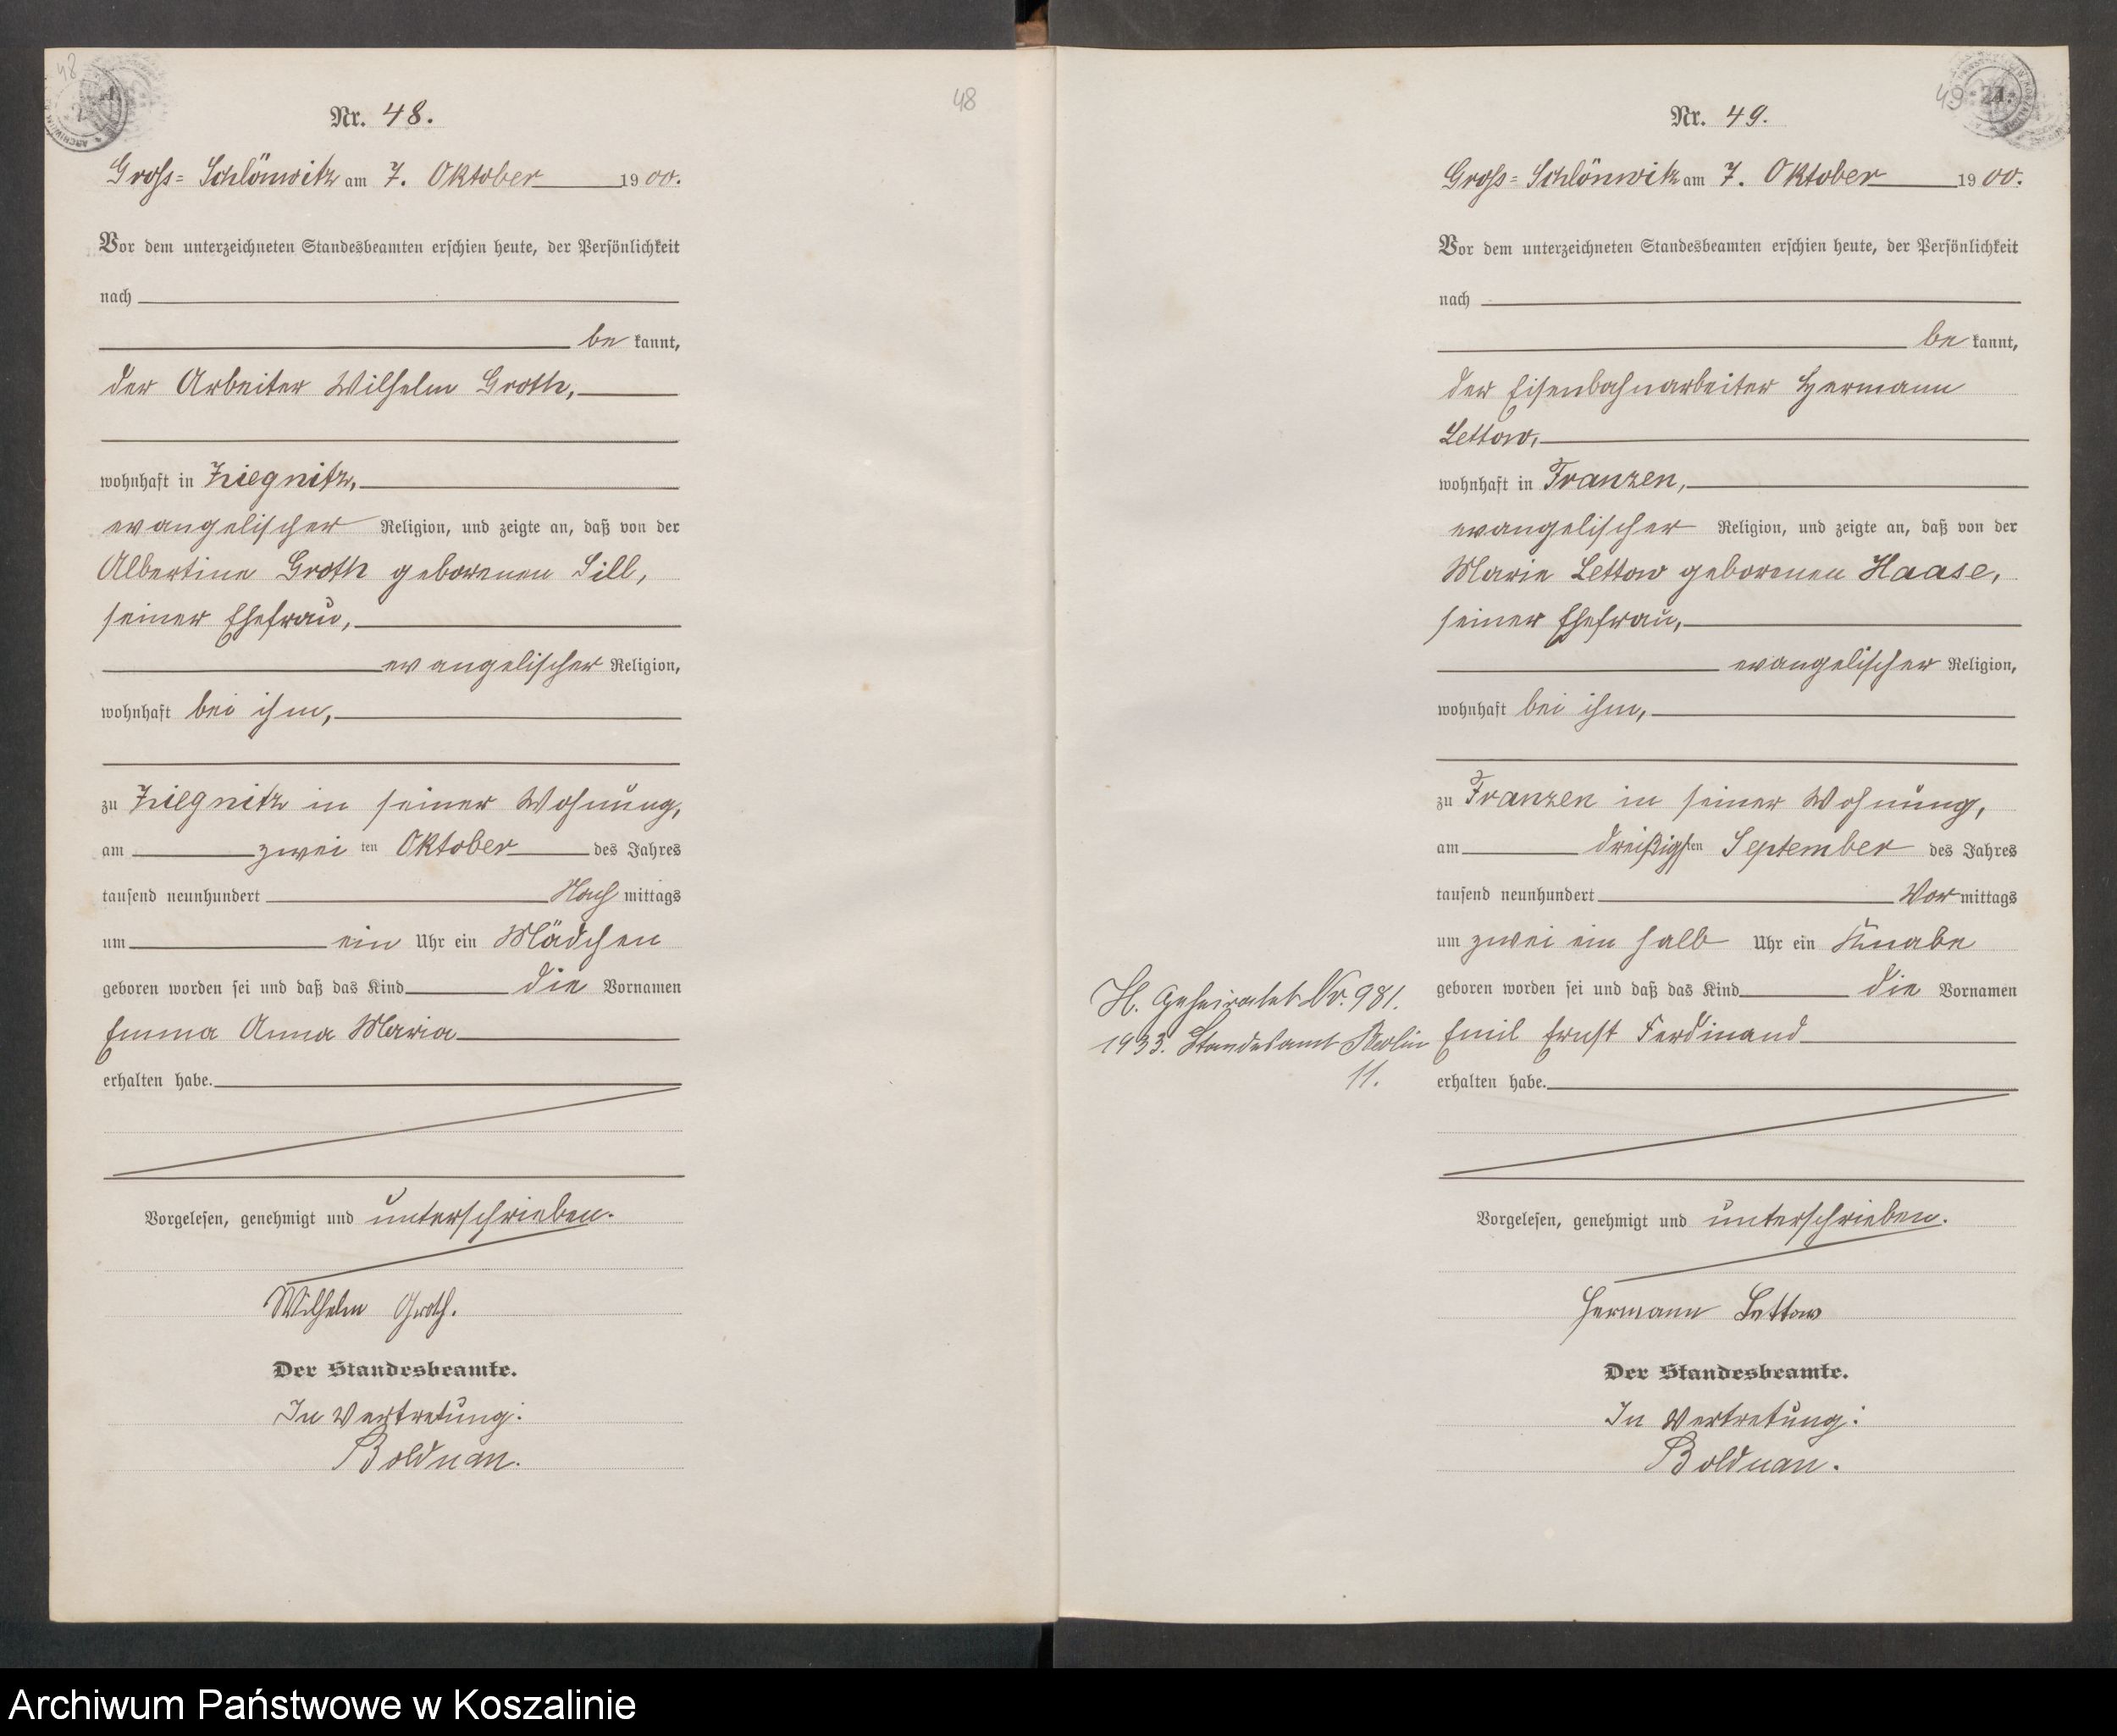 48
Nr. 48.
Gross= Schlönwitz am 7. Oktober 1900.
Vor dem unterzeichneten Standesbeamten erschien heute, der Persönlichkeit
nach
be kannt,
der Arbeiter Wilhelm Groth,
wohnhaft in Ziegnitz,
evangelischer Religion, und zeigte an, daß von der
Albertine Groth geborenen Sill,
seiner Ehefrau,
evangelischer Religion,
wohnhaft bei ihm,
zu Ziegnitz in seiner Wohnung,
am zwei ten Oktober des Jahres
tausend neunhundert Nach mittags
um ein Uhr ein Mädchen
geboren worden sei und daß das Kind die Vornamen
Emma Anna Maria
erhalten habe.
Vorgelesen, genehmigt und unterschrieben.
Wilhelm Groth.
Der Standesbeamte.
In Vertretung:
Bolduan.
48
49
Nr. 49.
Gross= Schlönwitz am 7. Oktober 1900.
Vor dem unterzeichneten Standesbeamten erschien heute, der Persönlichkeit
nach
be kannt,
der Eisenbahnarbeiter Hermann
Lettow,
wohnhaft in Franzen,
evangelischer Religion, und zeigte an, daß von der
Marie Lettow geborenen Haase,
seiner Ehefrau,
evangelischer Religion,
wohnhaft bei ihm,
zu Franzen in seiner Wohnung,
am dreißigsten September des Jahres
tausend neunhundert Vor mittags
um zwei ein halb Uhr ein Knabe
geboren worden sei und daß das Kind die Vornamen
Emil Ernst Ferdinand
erhalten habe.
H. Geheiratet Nr. 981.
1933. Standesamt Berlin
11.
Vorgelesen, genehmigt und unterschrieben.
Hermann Lettow
Der Standesbeamte.
In Vertretung:
Bolduan.
Archiwum Państwowe w Koszalinie